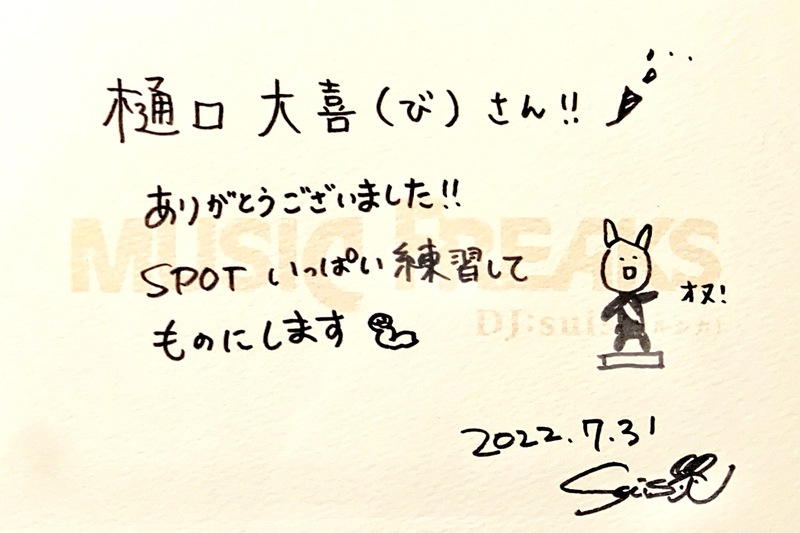 樋口 大喜(び)さん!!
ありがとうございました!!
MUSIC FREAKS
SPOT いっぱい練習して
DJ:suis
オヌ!
ものにします
2022.7.31
suis